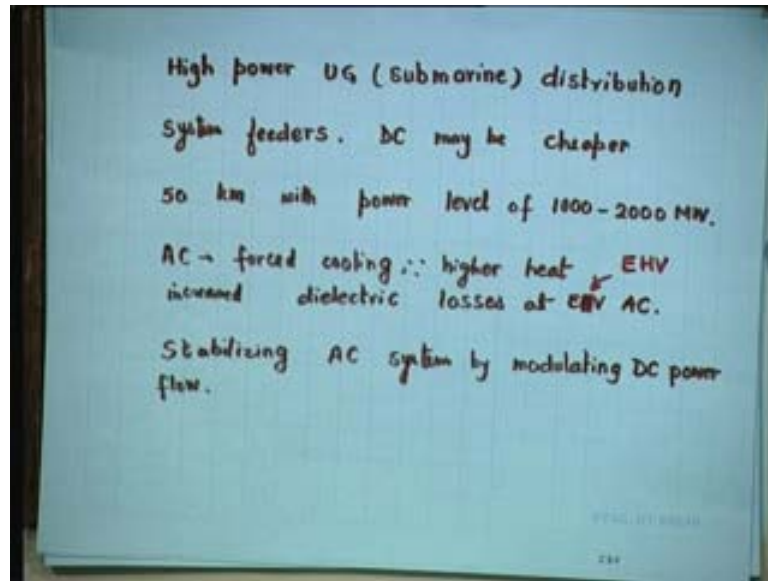 High power UG (submarine) distribution
System feeders. DC may be cheaper
50 km with power level of 1000-2000 MW.
AC → forced cooling ∵ higher heat EHV
increased dielectric losses at EHV AC.
Stabilizing AC system by modulating DC power
flow.